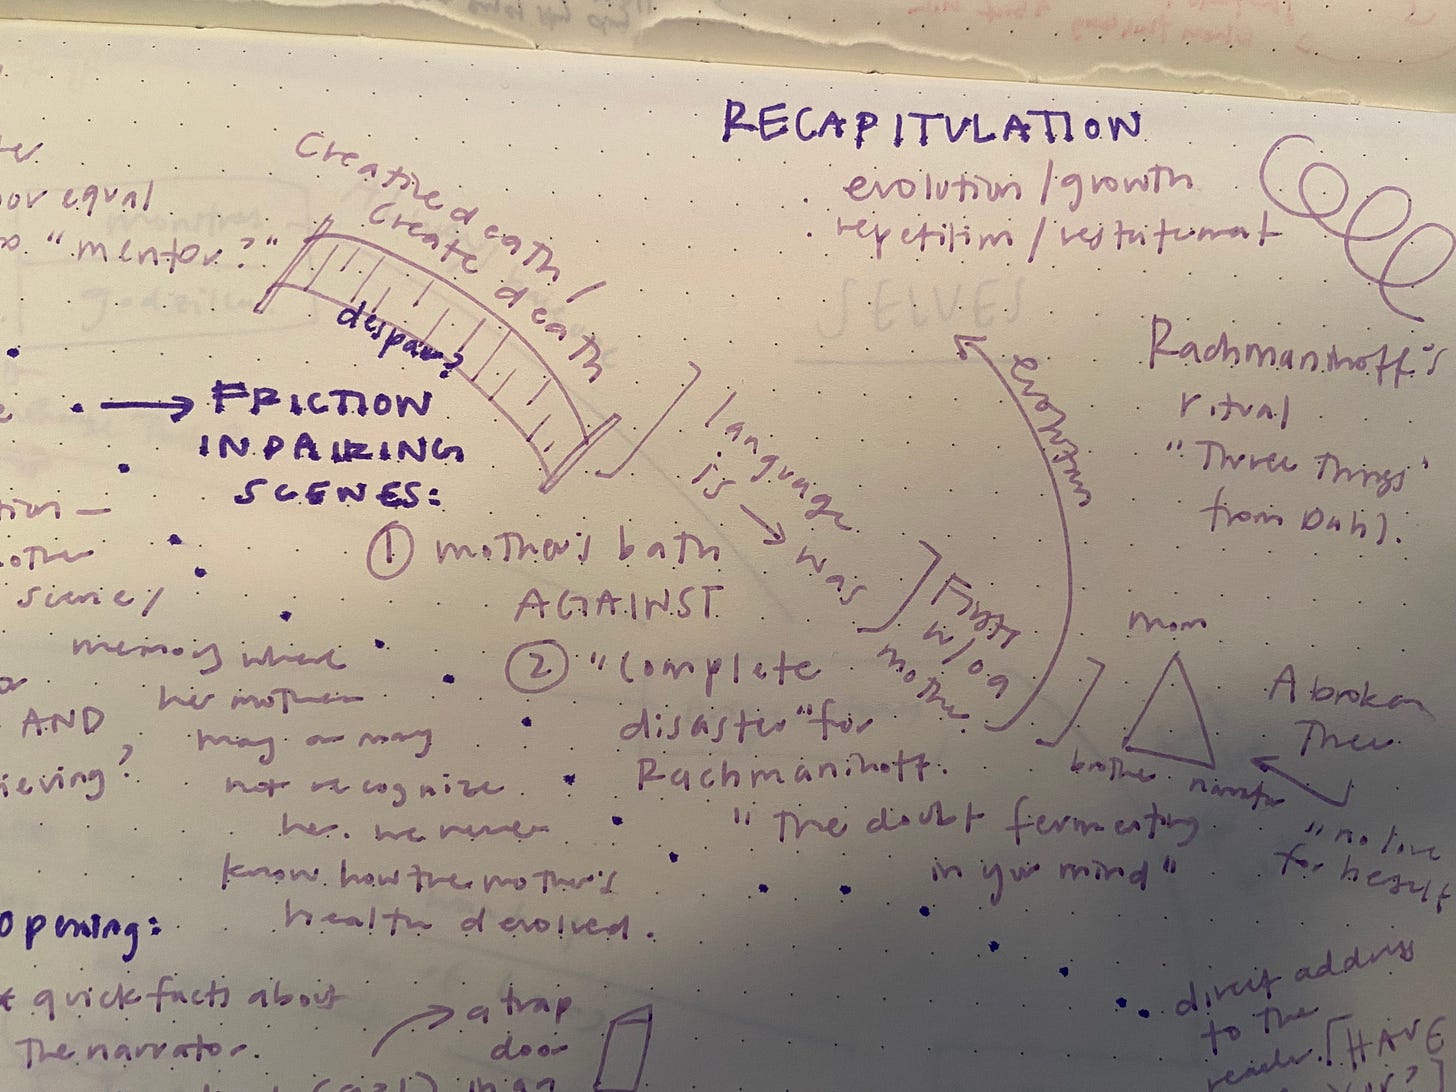 RECAPITULATION
evolution/growth
repetition/restatement
Creative death/
Create death
or equal
"mentor?"
despair?
SELVES
Rachmaninoff's
ritual
"Three things"
from Dahl.
FRICTION
IN PAIRING
SCENES:
① mother's bath
AGAINST
② "complete
disaster" for
Rachmaninoff.
"The doubt fermenting
in your mind"
language
is → was
First
w/
mother.
mom
brother
narrator
A broken
Three
"no love
for herself
scene/
memory where
her mother
AND
may or may
not recognize
her. we never
know how the mother's
health devolved.
opening:
quick facts about
the narrator.
a trap
door
direct address
to the
reader. [HAVE